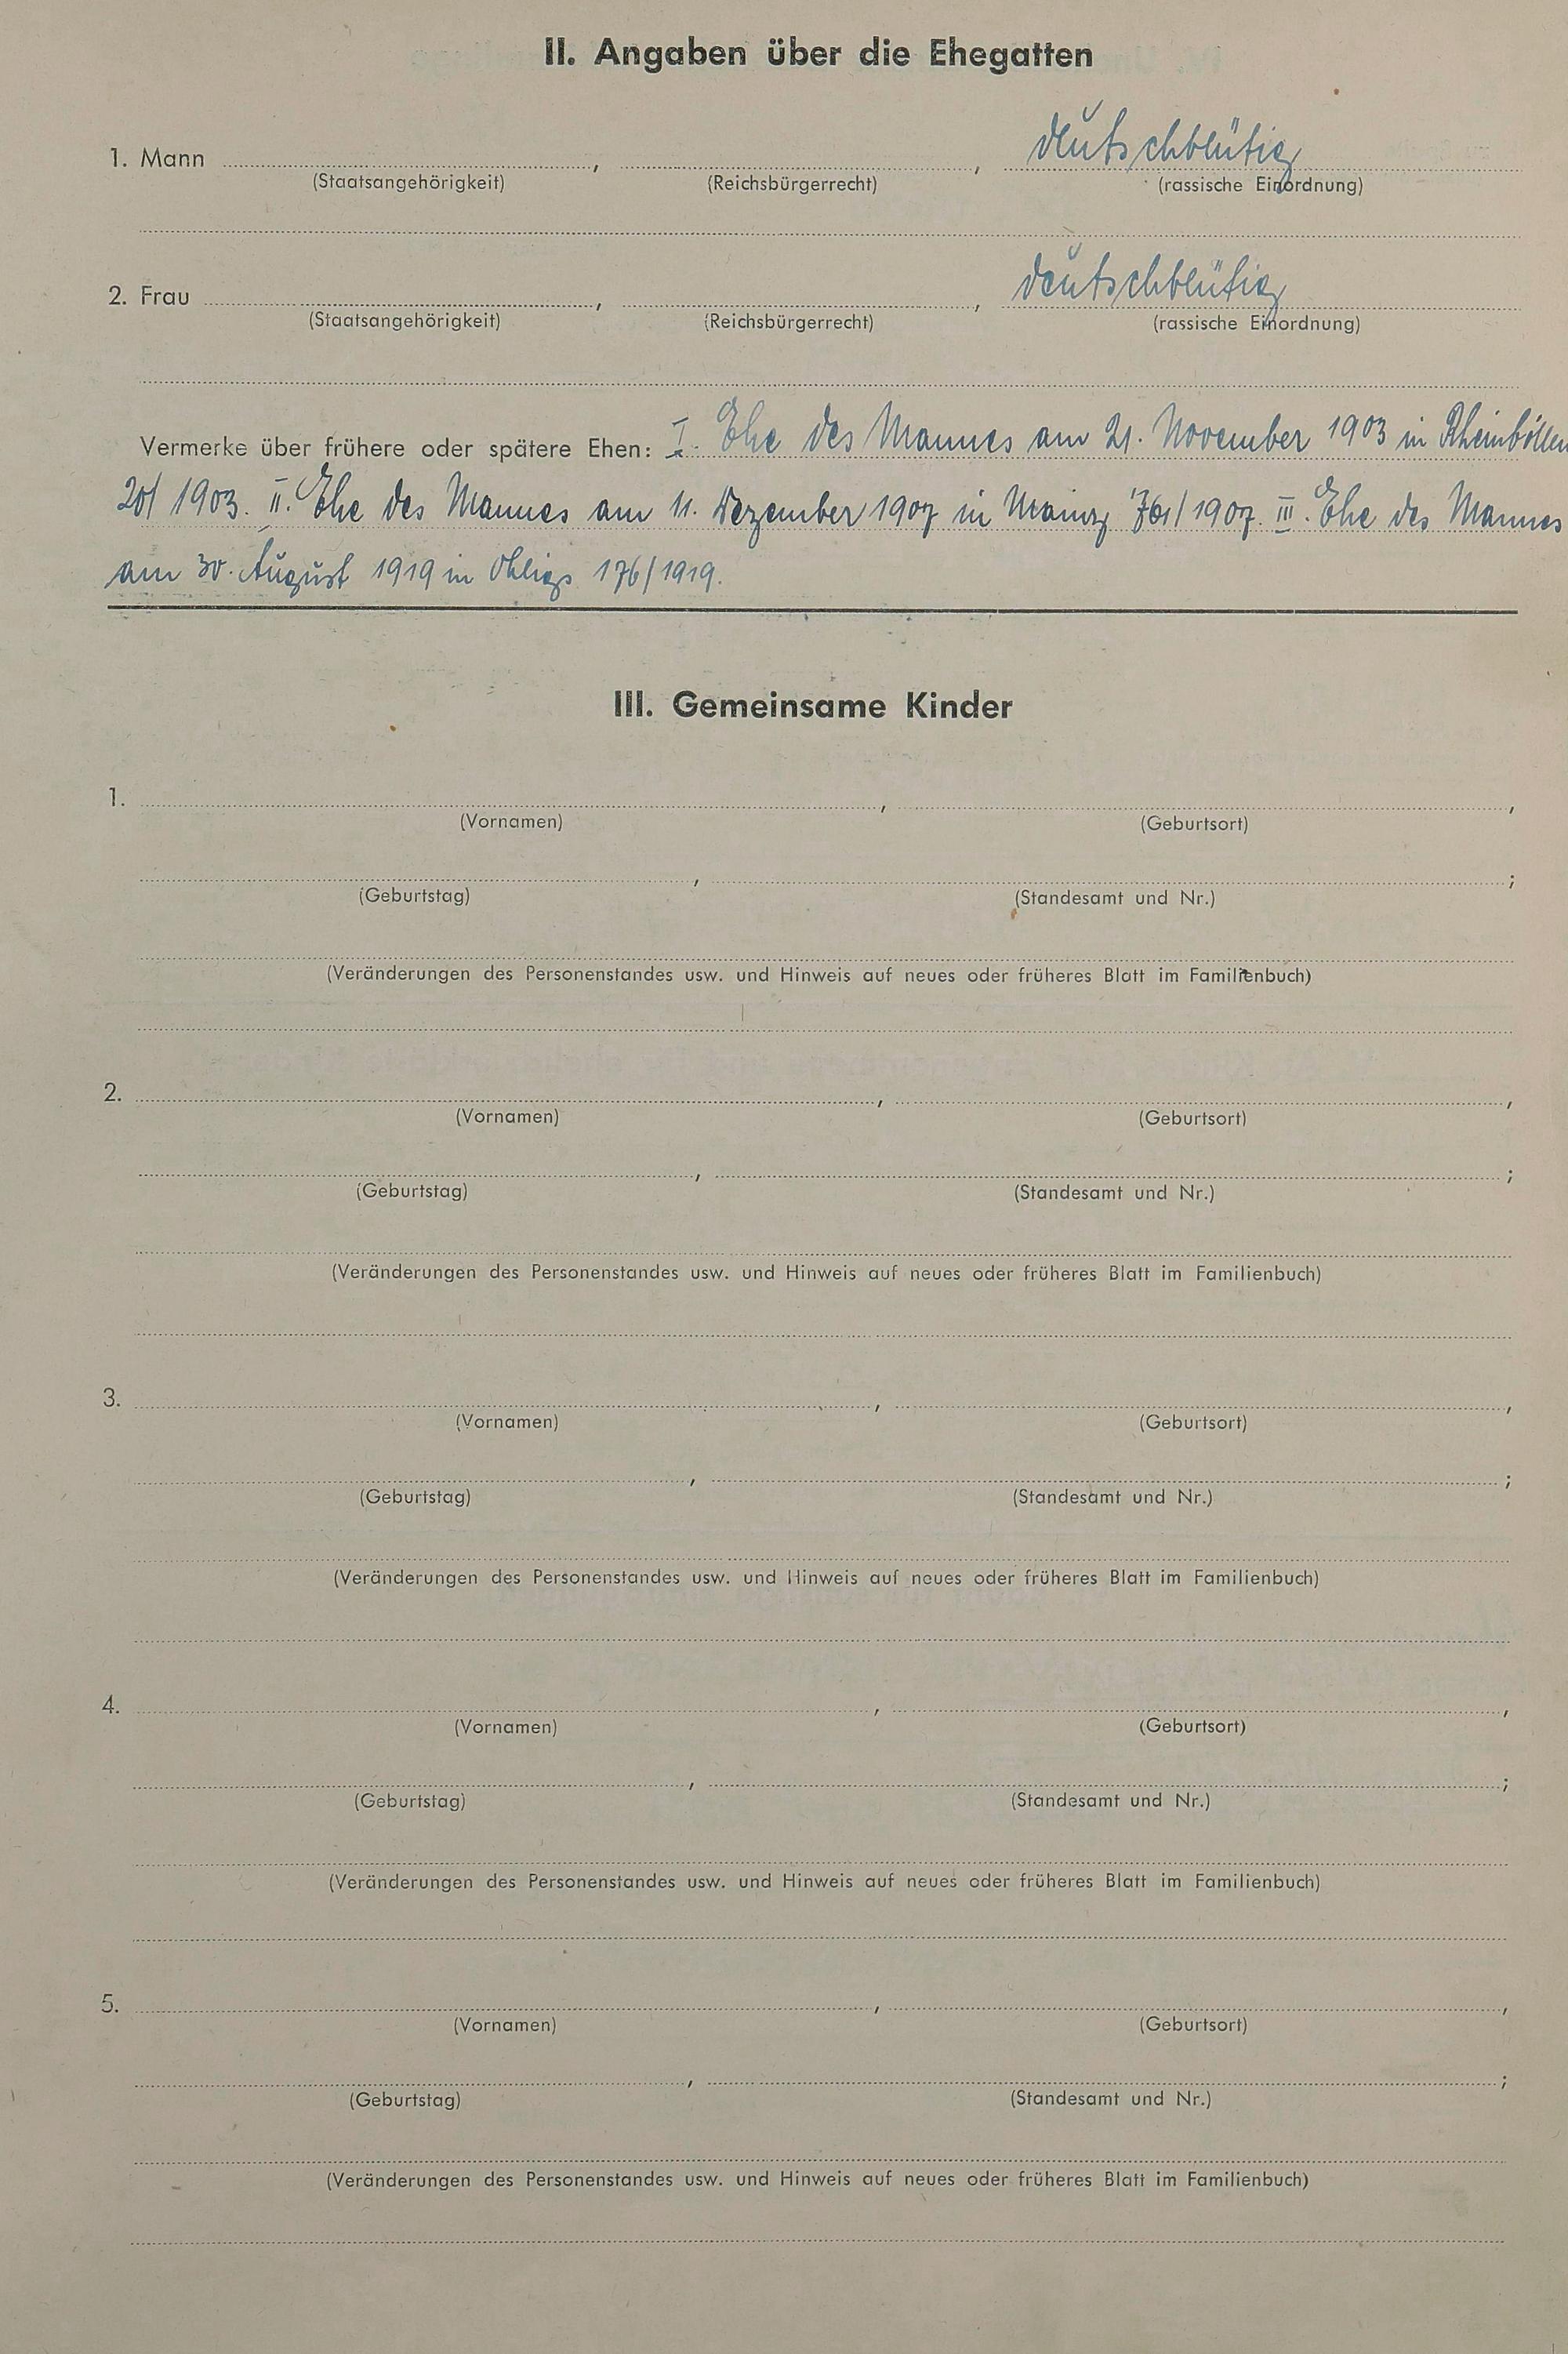 II. Angaben über die Ehegatten
1. Mann , , deutschblütig
(Staatsangehörigkeit) (Reichsbürgerrecht) (rassische Einordnung)
2. Frau , , deutschblütig
(Staatsangehörigkeit) (Reichsbürgerrecht) (rassische Einordnung)
Vermerke über frühere oder spätere Ehen: I. Ehe des Mannes am 21. November 1903 in Rheinböllen
20/1903. II. Ehe des Mannes am 11. Dezember 1907 in Mainz 761/1907. III. Ehe des Mannes
am 30. August 1919 in Ohligs 176/1919.
III. Gemeinsame Kinder
1. , ,
(Vornamen) (Geburtsort)
, ;
(Geburtstag) (Standesamt und Nr.)
(Veränderungen des Personenstandes usw. und Hinweis auf neues oder früheres Blatt im Familienbuch)
2. , ,
(Vornamen) (Geburtsort)
, ;
(Geburtstag) (Standesamt und Nr.)
(Veränderungen des Personenstandes usw. und Hinweis auf neues oder früheres Blatt im Familienbuch)
3. , ,
(Vornamen) (Geburtsort)
, ;
(Geburtstag) (Standesamt und Nr.)
(Veränderungen des Personenstandes usw. und Hinweis auf neues oder früheres Blatt im Familienbuch)
4. , ,
(Vornamen) (Geburtsort)
, ;
(Geburtstag) (Standesamt und Nr.)
(Veränderungen des Personenstandes usw. und Hinweis auf neues oder früheres Blatt im Familienbuch)
5. , ,
(Vornamen) (Geburtsort)
, ;
(Geburtstag) (Standesamt und Nr.)
(Veränderungen des Personenstandes usw. und Hinweis auf neues oder früheres Blatt im Familienbuch)